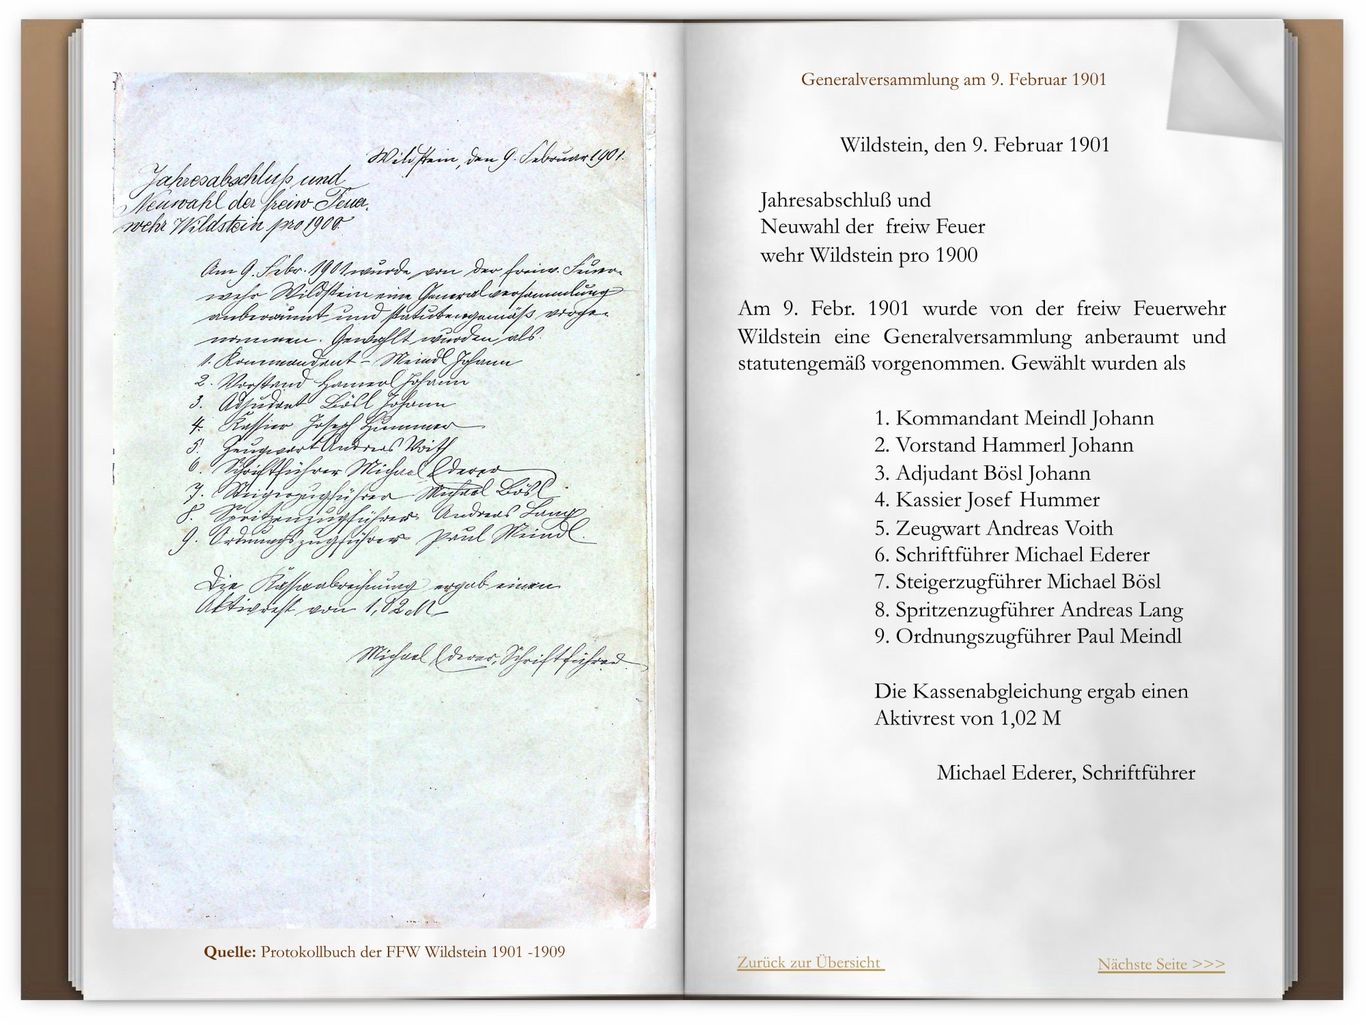 Wildstein, den 9. Februar 1901.
Jahresabschluß und
Neuwahl der freiw Feuer,
wehr Wildstein pro 1900.
Am 9. Febr. 1901 wurde von der freiw. Feuer-
wehr Wildstein eine Generalversammlung
anberaumt und statutengemäß vorge-
nommen. Gewählt wurden als
1. Kommandant - Meindl Johann
2. Vorstand Hamerl Johann
3. Adjudant Bösl Johann
4. Kassier Joseph Hummer
5. Zeugwart Andreas Voith
6. Schriftführer Michael Ederer
7. Steigerzugführer Michael Bösl
8. Spritzenzugführer Andreas Lang
9. Ordnungszugführer Paul Meindl.
Die Kassaabrechnung ergab einen
Aktivrest von 1,02 M
Michael Ederer, Schriftführer.
Quelle: Protokollbuch der FFW Wildstein 1901 -1909
Generalversammlung am 9. Februar 1901
Wildstein, den 9. Februar 1901
Jahresabschluß und
Neuwahl der freiw Feuer
wehr Wildstein pro 1900
Am 9. Febr. 1901 wurde von der freiw Feuerwehr
Wildstein eine Generalversammlung anberaumt und
statutengemäß vorgenommen. Gewählt wurden als
1. Kommandant Meindl Johann
2. Vorstand Hammerl Johann
3. Adjudant Bösl Johann
4. Kassier Josef Hummer
5. Zeugwart Andreas Voith
6. Schriftführer Michael Ederer
7. Steigerzugführer Michael Bösl
8. Spritzenzugführer Andreas Lang
9. Ordnungszugführer Paul Meindl
Die Kassenabgleichung ergab einen
Aktivrest von 1,02 M
Michael Ederer, Schriftführer
Zurück zur Übersicht
Nächste Seite >>>